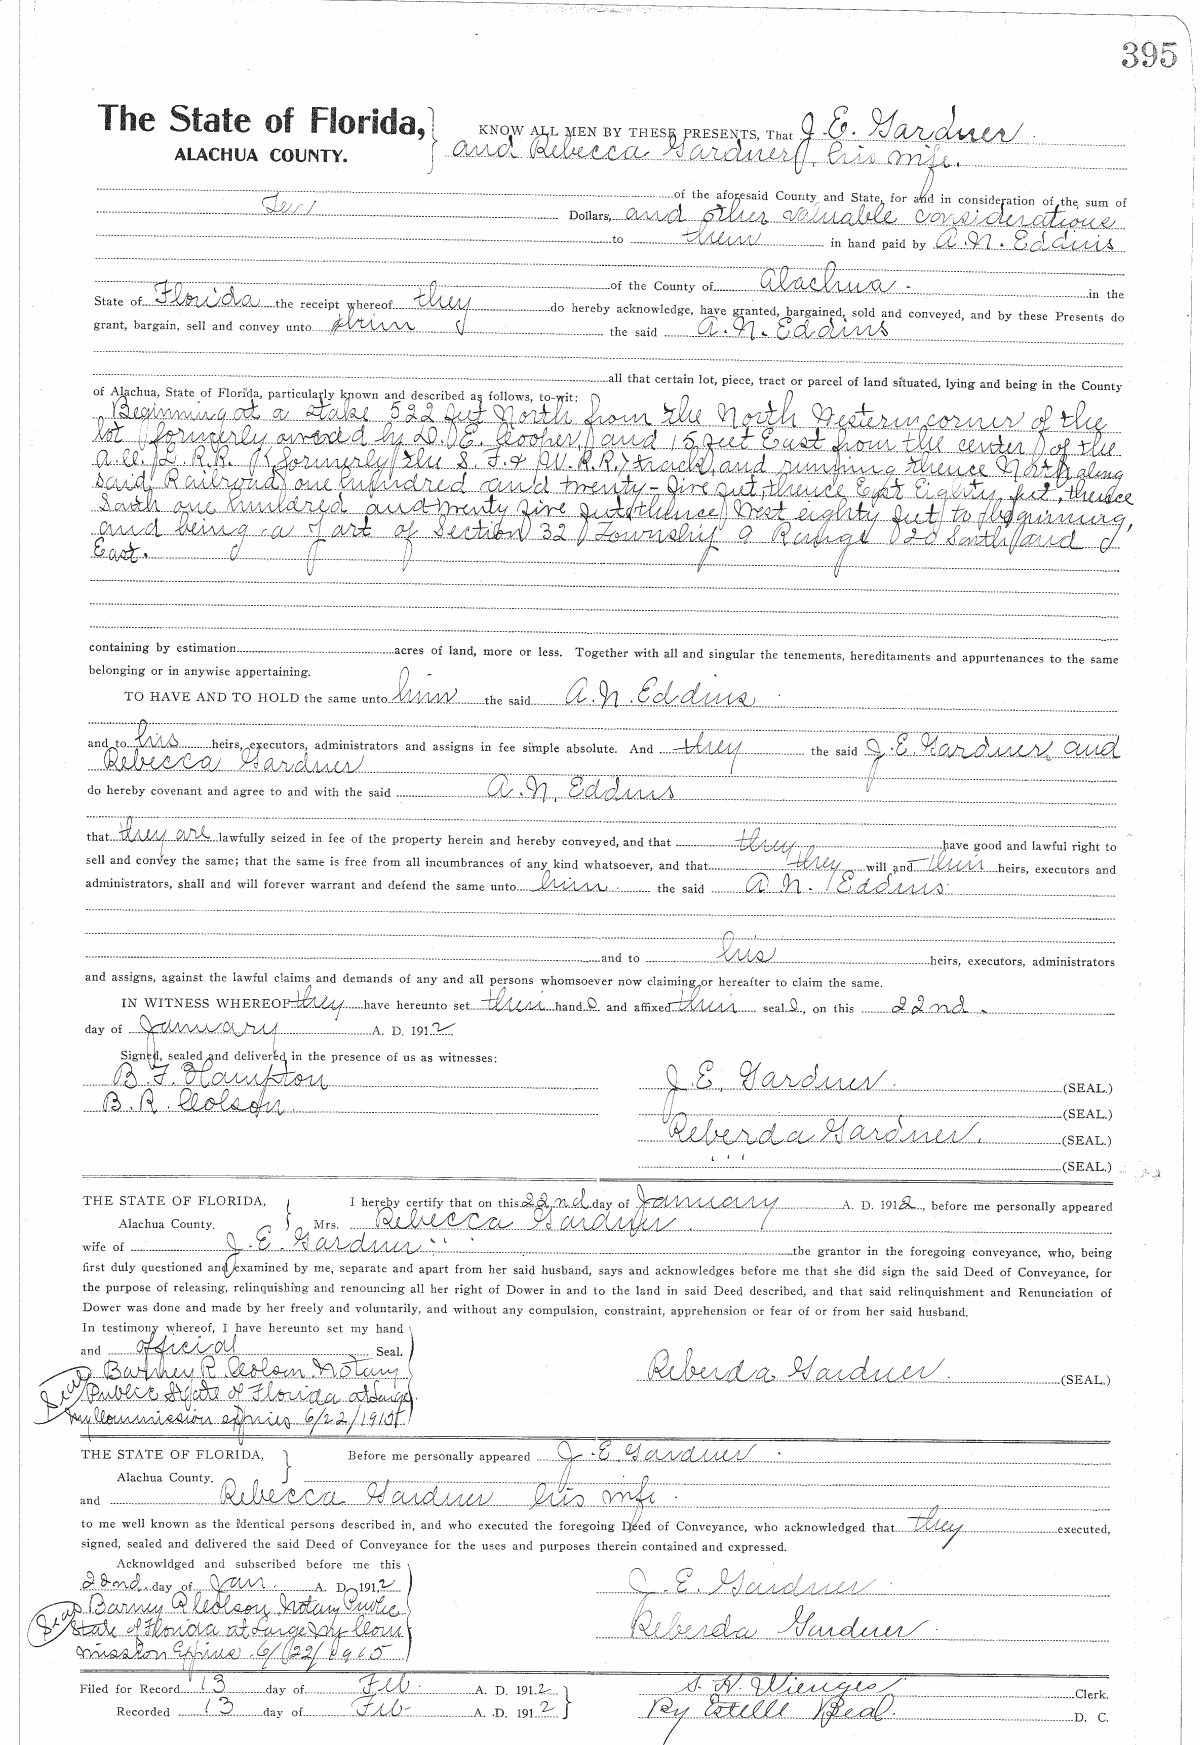 395
The State of Florida, KNOW ALL MEN BY THESE PRESENTS, That J. E. Gardner
ALACHUA COUNTY. and Rebecca Gardner, his wife.
of the aforesaid County and State, for and in consideration of the sum of
Ten Dollars, and other valuable considerations
to them in hand paid by A. N. Eddins
of the County of Alachua in the
State of Florida the receipt whereof they do hereby acknowledge, have granted, bargained, sold and conveyed, and by these Presents do
grant, bargain, sell and convey unto him the said A. N. Eddins
all that certain lot, piece, tract or parcel of land situated, lying and being in the County
of Alachua, State of Florida, particularly known and described as follows, to-wit:
Beginning at a stake 522 feet North from the North Western corner of the
lot formerly owned by D. E. Cooper, and 15 feet East from the center of the
A. C. L. R.R. (formerly the S. F. & W. R.R.) track, and running thence North along
said Railroad one hundred and twenty-five feet, thence East Eighty feet, thence
South one hundred and twenty five feet thence West eighty feet to beginning,
and being a part of Section 32 Township 9 Range 20 South and
East.
containing by estimation acres of land, more or less. Together with all and singular the tenements, hereditaments and appurtenances to the same
belonging or in anywise appertaining.
TO HAVE AND TO HOLD the same unto him the said A. N. Eddins
and to his heirs, executors, administrators and assigns in fee simple absolute. And they the said J. E. Gardner and
Rebecca Gardner
do hereby covenant and agree to and with the said A. N. Eddins
that they are lawfully seized in fee of the property herein and hereby conveyed, and that they have good and lawful right to
sell and convey the same; that the same is free from all incumbrances of any kind whatsoever, and that they will and their heirs, executors and
administrators, shall and will forever warrant and defend the same unto him the said A. N. Eddins
and to his heirs, executors, administrators
and assigns, against the lawful claims and demands of any and all persons whomsoever now claiming or hereafter to claim the same.
IN WITNESS WHEREOF they have hereunto set their hands and affixed their seals, on this 22nd.
day of January A. D. 1912
Signed, sealed and delivered in the presence of us as witnesses:
B. F. Hampton J. E. Gardner (SEAL.)
B. R. Colson (SEAL.)
Reberda Gardner. (SEAL.)
(SEAL.)
THE STATE OF FLORIDA, I hereby certify that on this 22nd day of January A. D. 1912, before me personally appeared
Alachua County. Mrs. Rebecca Gardner
wife of J. E. Gardner the grantor in the foregoing conveyance, who, being
first duly questioned and examined by me, separate and apart from her said husband, says and acknowledges before me that she did sign the said Deed of Conveyance, for
the purpose of releasing, relinquishing and renouncing all her right of Dower in and to the land in said Deed described, and that said relinquishment and Renunciation of
Dower was done and made by her freely and voluntarily, and without any compulsion, constraint, apprehension or fear of or from her said husband.
In testimony whereof, I have hereunto set my hand
and official Seal.
Barney R. Colson Notary Reberda Gardner (SEAL.)
Seal Public State of Florida at Large.
My Commission expires 6/22/1915
THE STATE OF FLORIDA, Before me personally appeared J. E. Gardner
Alachua County.
and Rebecca Gardner his wife
to me well known as the identical persons described in, and who executed the foregoing Deed of Conveyance, who acknowledged that they executed,
signed, sealed and delivered the said Deed of Conveyance for the uses and purposes therein contained and expressed.
Acknowldged and subscribed before me this
22nd. day of Jan. A. D. 1912 J. E. Gardner
Seal Barney R Colson, Notary Public
State of Florida at Large My Com Reberda Gardner
mission Expires 6/22/1915
Filed for Record 13 day of Feb. A. D. 1912 S. H. Wienges Clerk.
Recorded 13 day of Feb A. D. 1912 By Estelle Beal. D. C.